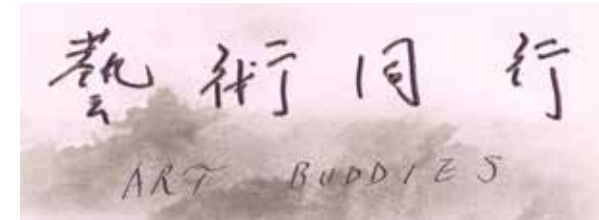 藝術同行
ART BUDDIES